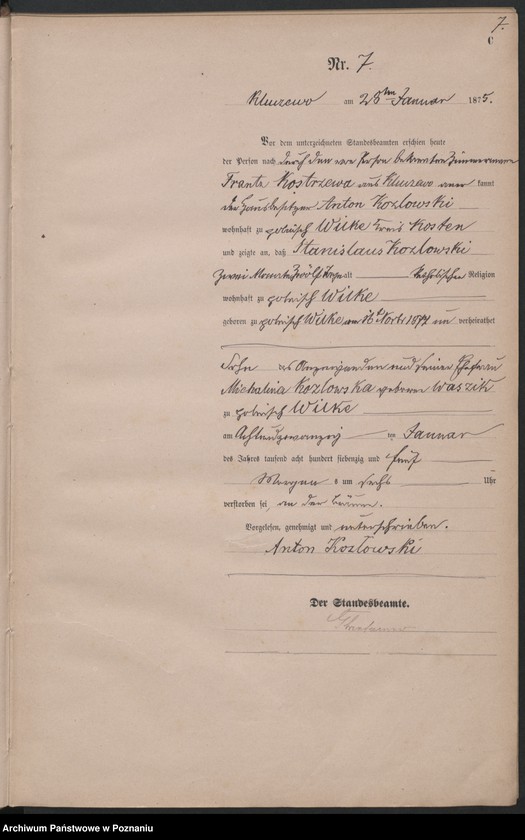 7.
C
Nr. 7.
Kluczewo am 28ten Januar 1875.
Vor dem unterzeichneten Standesbeamten erschien heute
der Person nach durch den von Person bekannten Zimmermann
Frantz Kostrzewa aus Kluczewo aner kannt
der Hausbesitzer Anton Kozlowski
wohnhaft zu polnisch Wilke Kreis Kosten
und zeigte an, daß Stanislaus Kozlowski
Zwei Monat Zwölf Tage alt Katholischer Religion
wohnhaft zu polnisch Wilke
geboren zu polnisch Wilke am 16t Novbr 1874 un verheirathet
Sohn des Anzeigenden und seiner Ehefrau
Michalina Kozlowska geborene Waszik
zu polnisch Wilke
am Achtundzwanzig ten Januar
des Jahres tausend acht hundert siebenzig und fünf
Morgen s um sechs Uhr
verstorben sei, an der
Vorgelesen, genehmigt und unterschrieben.
Anton Kozłowski
Der Standesbeamte.
Archiwum Państwowe w Poznaniu